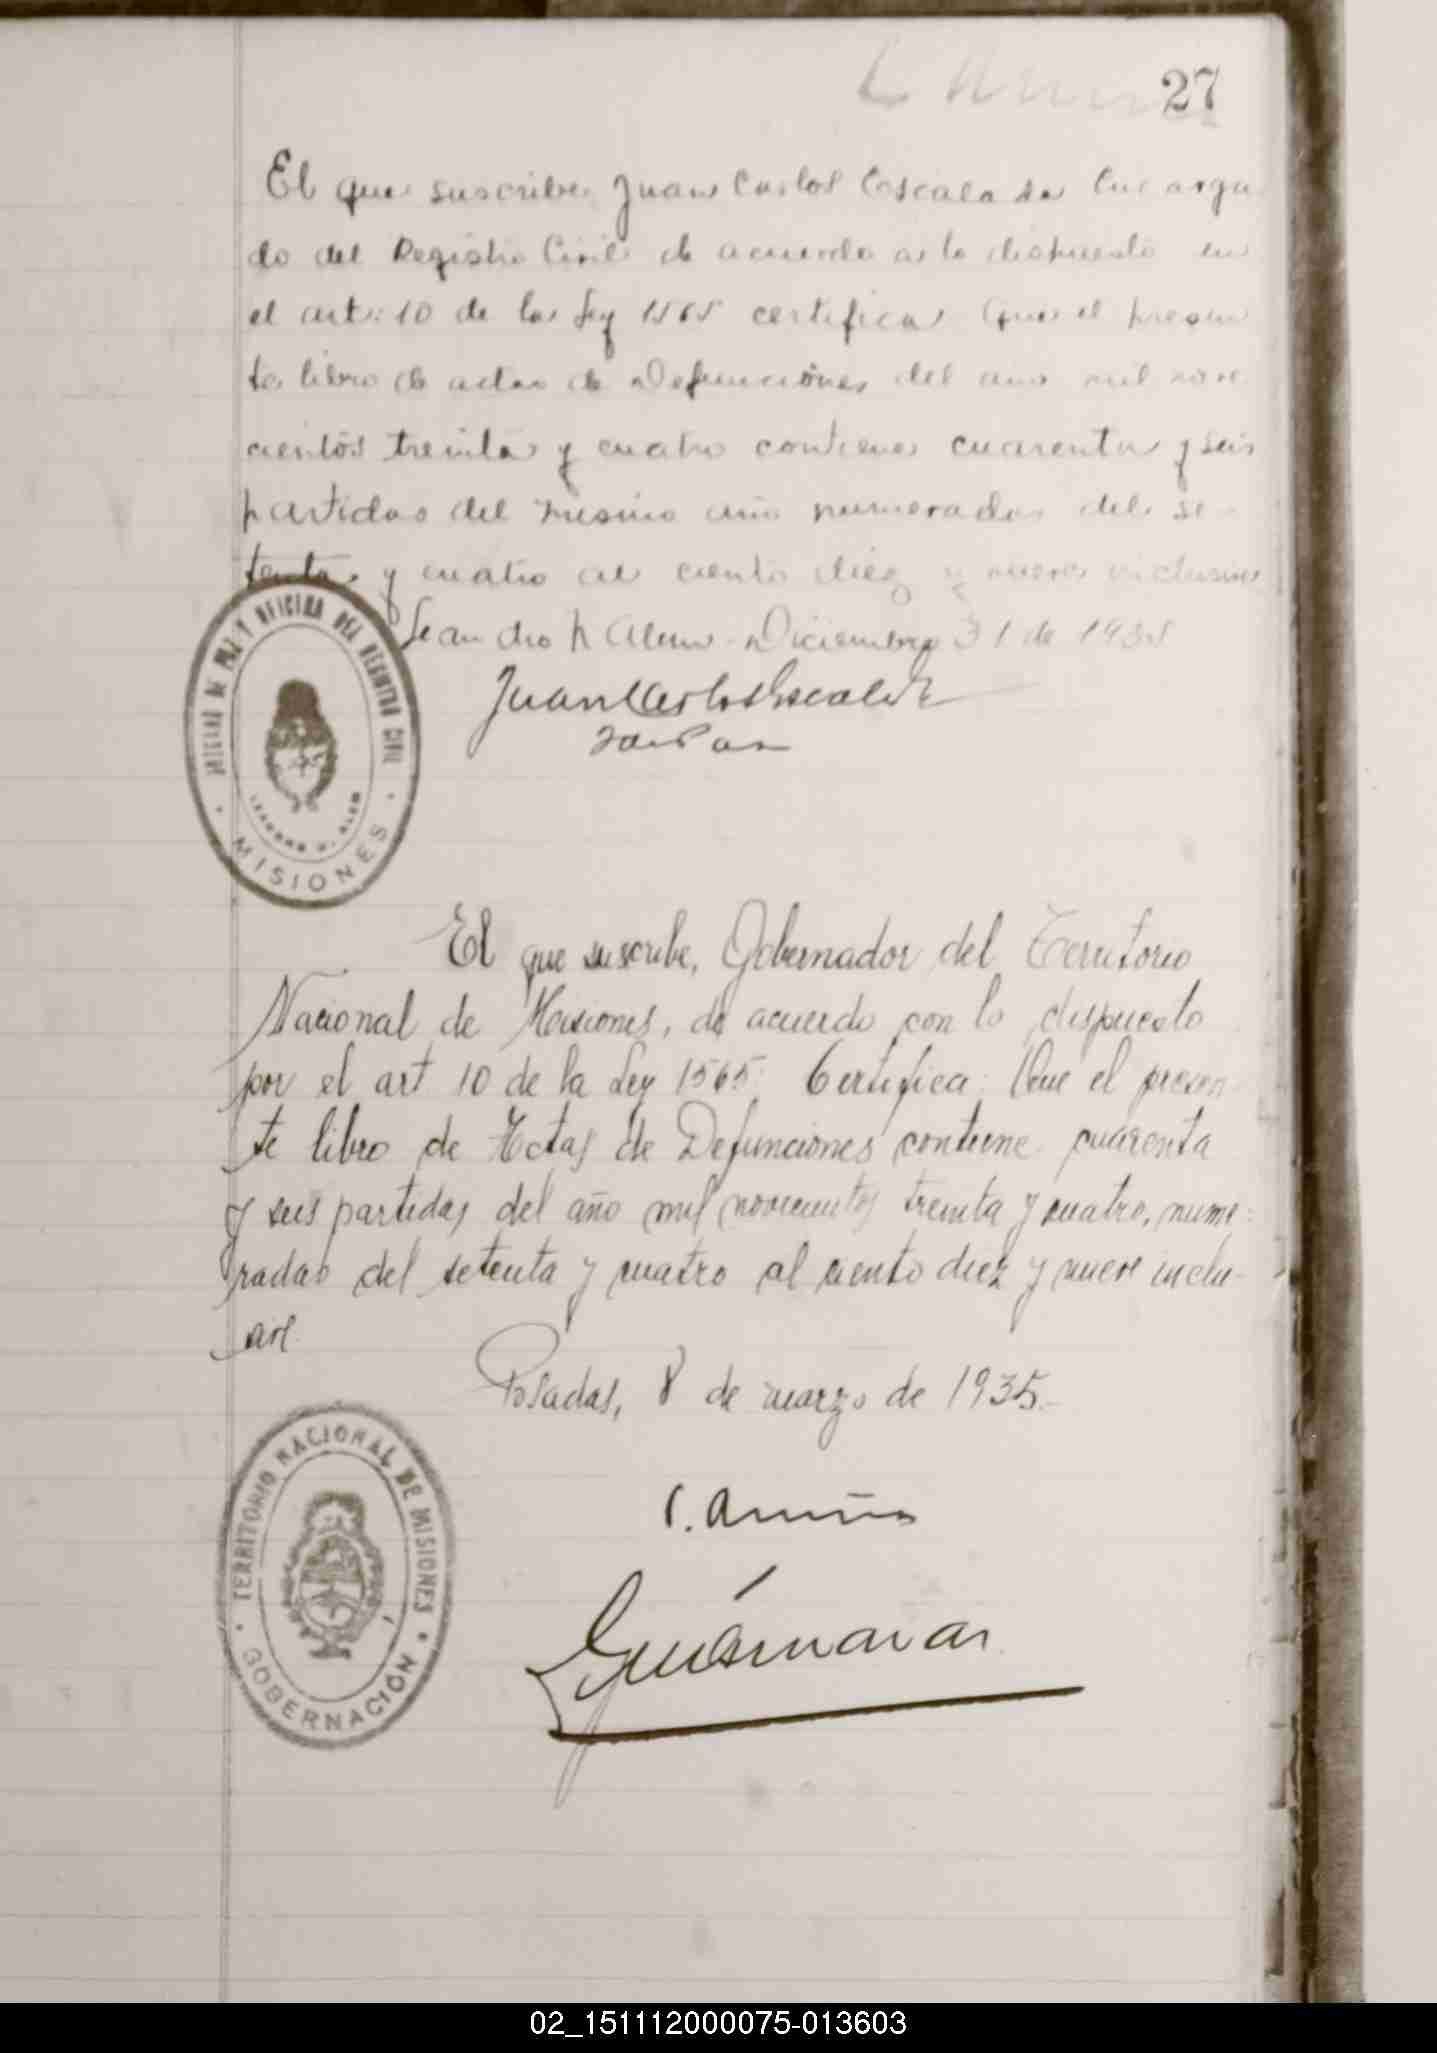 27
El que suscribe Juan Carlos Escalada Encarga
do del Registro Civil de acuerdo a lo dispuesto en
el art: 10 de la Ley 1565 certifica Que el presen
te libro de actas de Defunciones del año mil nove
cientos treinta y cuatro contiene cuarenta y seis
partidas del mismo año numeradas del se-
tenta y cuatro al ciento diez y nueve inclusive
Leandro N Alem - Diciembre 31 de
Juan Carlos Escalada
Juez Paz
JUZGADO DE PAZ Y OFICINA DEL REGISTRO CIVIL
LEANDRO N. ALEM
MISIONES
El que suscribe, Gobernador del Territorio
Nacional de Misiones, de acuerdo con lo dispuesto
por el art 10 de la Ley 1565: Certifica: Que el presen
te libro de Actas de Defunciones contiene cuarenta
y seis partidas del año mil novecientos treinta y cuatro, nume-
radas del setenta y cuatro al ciento diez y nueve inclu-
sive.
Posadas, 8 de marzo de 1935.-
TERRITORIO NACIONAL DE MISIONES
GOBERNACIÓN
02_151112000075-013603